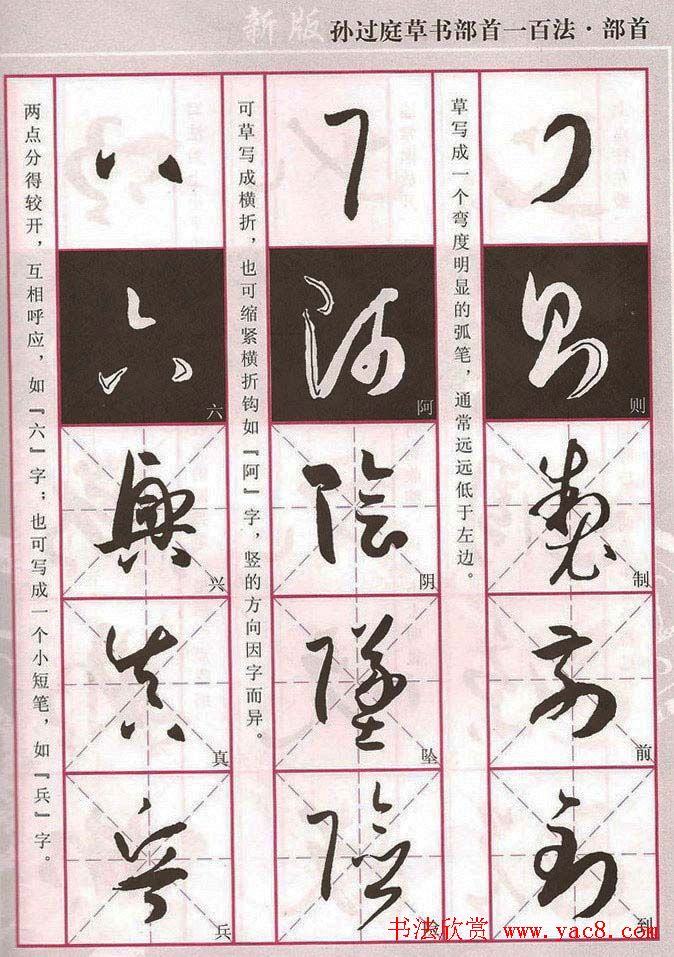 新版 孙过庭草书部首一百法·部首
草写成一个弯度明显的弧笔，通常远远低于左边。
则
制
前
到
可草写成横折，也可缩紧横折钩如『阿』字，竖的方向因字而异。
阿
阴
坠
两点分得较开，互相呼应，如『六』字；也可写成一个小短笔，如『兵』字。
六
兴
真
兵
书法欣赏
www.yac8.com